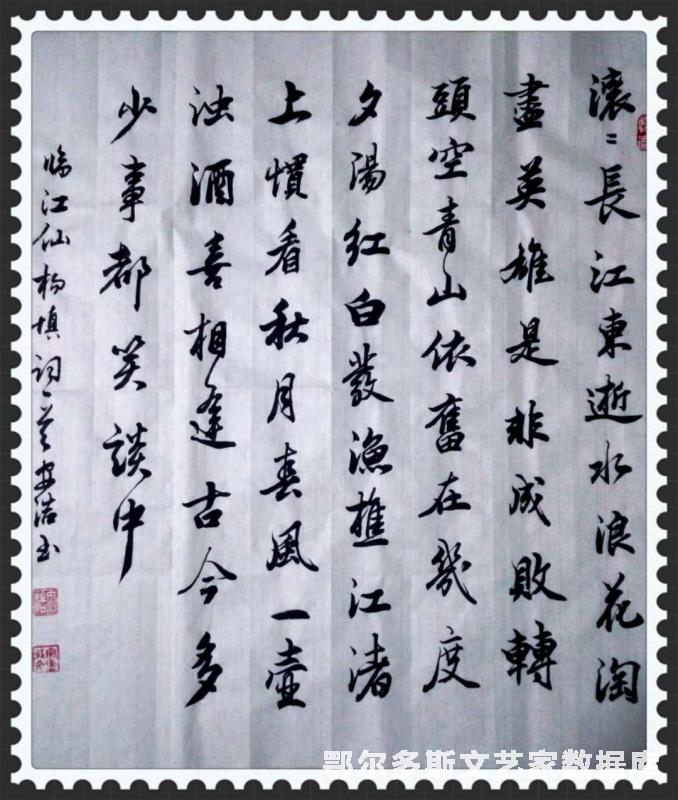 滚〻長江東逝水浪花淘
盡英雄是非成敗轉
頭空青山依舊在幾度
夕陽紅白發漁樵江渚
上慣看秋月春風一壺
浊酒喜相逢古今多
少事都笑談中
临江仙杨慎词浩书
鄂尔多斯文艺家数据库